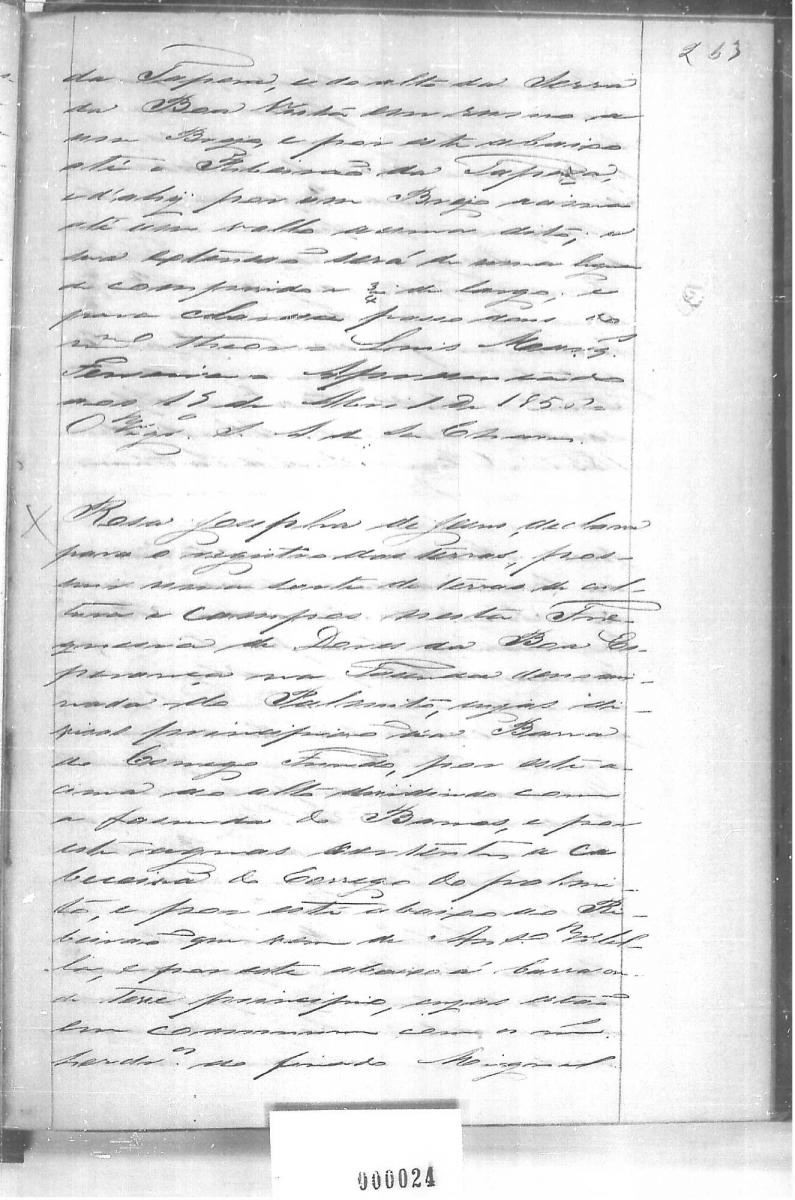 263
da Tapera, e do alto da Serra
da Boa Vista em rumo a
um Brejo, e por este abaixo
até o Ribeirão da Tapera,
e d'ahy por um Brejo acima
até um vallo acima dito, e
sua extensão será de uma legua
de comprido e 3/4 de largo, e
para clareza passo dous do
mmo theor Luis
Ferreira Apresentado
aos 13 de Abril de 185
O Vigo. de
X Rosa Josepha de Jesus, declara
para o registro das terras, pos-
sue uma sorte de terras de cul-
tura e campos nesta Fre-
guesia de Dores da Boa Es-
perança na Fazenda denomi-
nada do Palmito, cujas di-
visas principião na Barra
do Corrego Fundo, por este a-
cima ao alto dividindo com
a fazenda do Barros, e por
este agoas vertentes a ca-
beceira do Corrego do palmi-
to, e por este abaixo ao Ri-
beirão que vem de Anto.
e por este abaixo á barra on-
de teve principio, cujas estão
em commum com os
herdros. do finado Miguel
000024